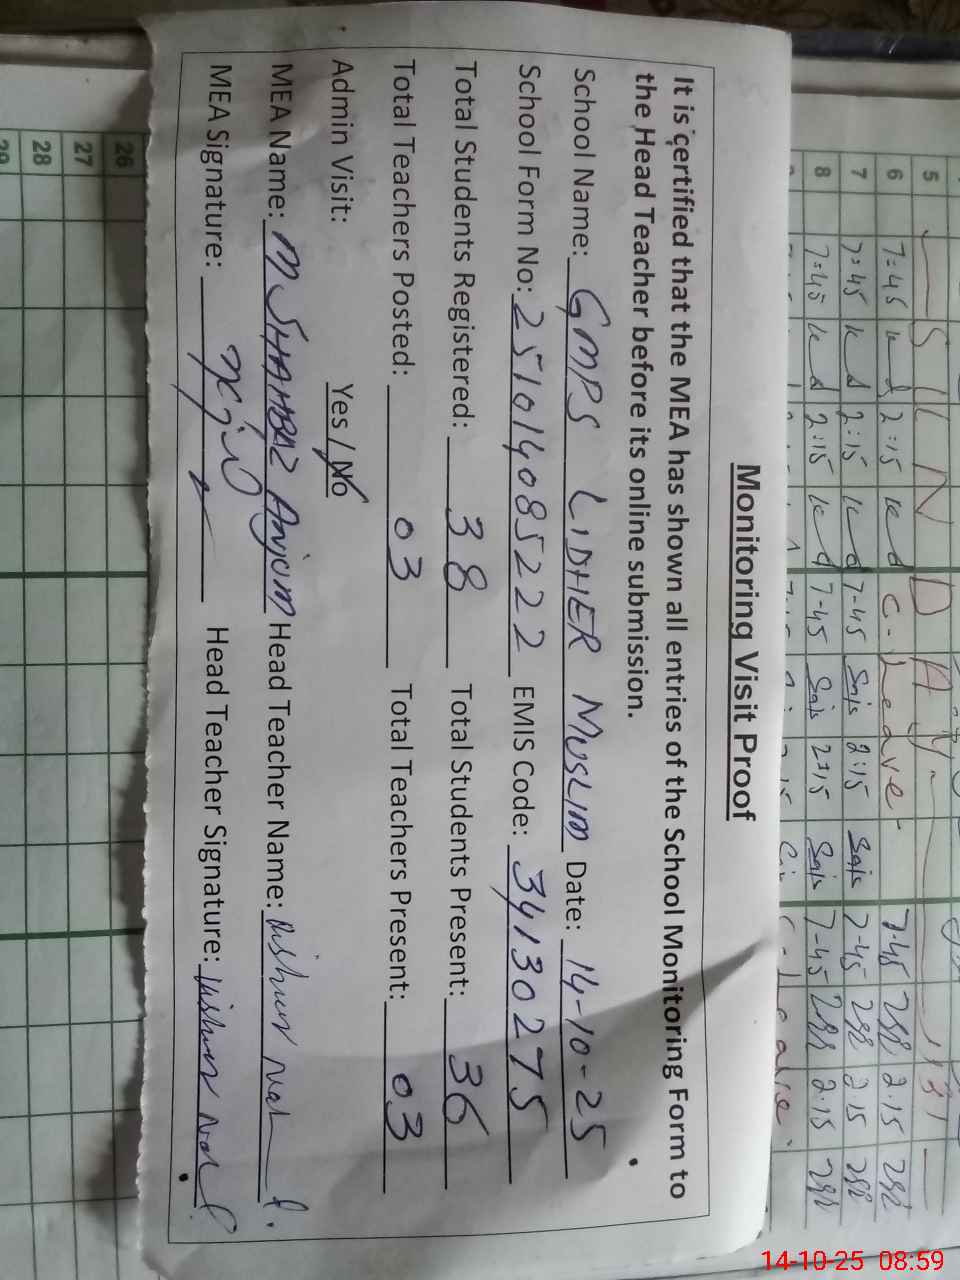 Monitoring Visit Proof
It is certified that the MEA has shown all entries of the School Monitoring Form to
the Head Teacher before its online submission.
School Name: GMPS LIDHER MUSLIM Date: 14-10-25
School Form No: 251014085222 EMIS Code: 34130275
Total Students Registered: 38 Total Students Present: 36
Total Teachers Posted: 03 Total Teachers Present: 03
Admin Visit: Yes / No
MEA Name: M SHAHBAZ Anjum Head Teacher Name:
MEA Signature: Head Teacher Signature:
5 S U N D A Y
6 7:45 2:15 C-Leave 7-45 2.15
7 7:45 2:15 7-45 2:15 7-45 2.15
8 7:45 2:15 7-45 2:15 7-45 2.15
26
27
28
29
14-10-25 08:59